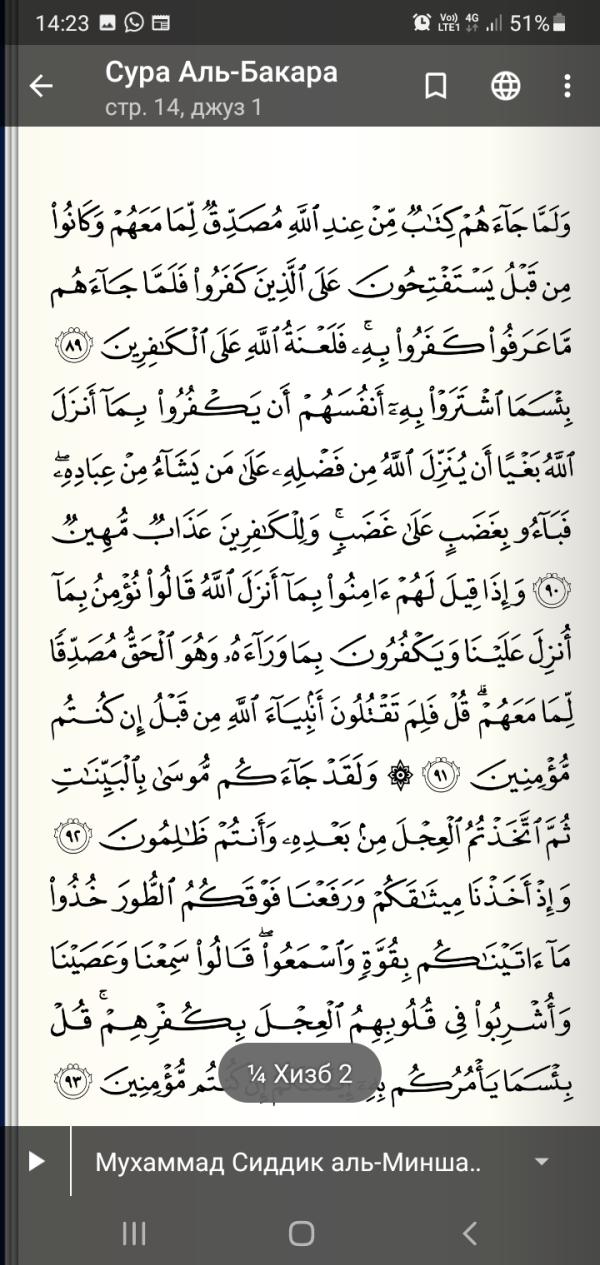 14:23 Vo)) LTE1 4G 51%
Сура Аль-Бакара
стр. 14, джуз 1
وَلَمَّا جَآءَهُمْ كِتَٰبٌ مِّنْ عِندِ ٱللَّهِ مُصَدِّقٌ لِّمَا مَعَهُمْ وَكَانُوا۟
مِن قَبْلُ يَسْتَفْتِحُونَ عَلَى ٱلَّذِينَ كَفَرُوا۟ فَلَمَّا جَآءَهُم
مَّا عَرَفُوا۟ كَفَرُوا۟ بِهِۦ ۚ فَلَعْنَةُ ٱللَّهِ عَلَى ٱلْكَٰفِرِينَ ٨٩
بِئْسَمَا ٱشْتَرَوْا۟ بِهِۦٓ أَنفُسَهُمْ أَن يَكْفُرُوا۟ بِمَآ أَنزَلَ
ٱللَّهُ بَغْيًا أَن يُنَزِّلَ ٱللَّهُ مِن فَضْلِهِۦ عَلَىٰ مَن يَشَآءُ مِنْ عِبَادِهِۦ ۖ
فَبَآءُو بِغَضَبٍ عَلَىٰ غَضَبٍ ۚ وَلِلْكَٰفِرِينَ عَذَابٌ مُّهِينٌ
٩٠ وَإِذَا قِيلَ لَهُمْ ءَامِنُوا۟ بِمَآ أَنزَلَ ٱللَّهُ قَالُوا۟ نُؤْمِنُ بِمَآ
أُنزِلَ عَلَيْنَا وَيَكْفُرُونَ بِمَا وَرَآءَهُۥ وَهُوَ ٱلْحَقُّ مُصَدِّقًا
لِّمَا مَعَهُمْ ۗ قُلْ فَلِمَ تَقْتُلُونَ أَنۢبِيَآءَ ٱللَّهِ مِن قَبْلُ إِن كُنتُم
مُّؤْمِنِينَ ٩١ ۞ وَلَقَدْ جَآءَكُم مُّوسَىٰ بِٱلْبَيِّنَٰتِ
ثُمَّ ٱتَّخَذْتُمُ ٱلْعِجْلَ مِنۢ بَعْدِهِۦ وَأَنتُمْ ظَٰلِمُونَ ٩٢
وَإِذْ أَخَذْنَا مِيثَٰقَكُمْ وَرَفَعْنَا فَوْقَكُمُ ٱلطُّورَ خُذُوا۟
مَآ ءَاتَيْنَٰكُم بِقُوَّةٍ وَٱسْمَعُوا۟ ۖ قَالُوا۟ سَمِعْنَا وَعَصَيْنَا
وَأُشْرِبُوا۟ فِى قُلُوبِهِمُ ٱلْعِجْلَ بِكُفْرِهِمْ ۚ قُلْ
بِئْسَمَا يَأْمُرُكُم بِهِۦٓ كُنتُم مُّؤْمِنِينَ ٩٣
¼ Хизб 2
Мухаммад Сиддик аль-Минша..